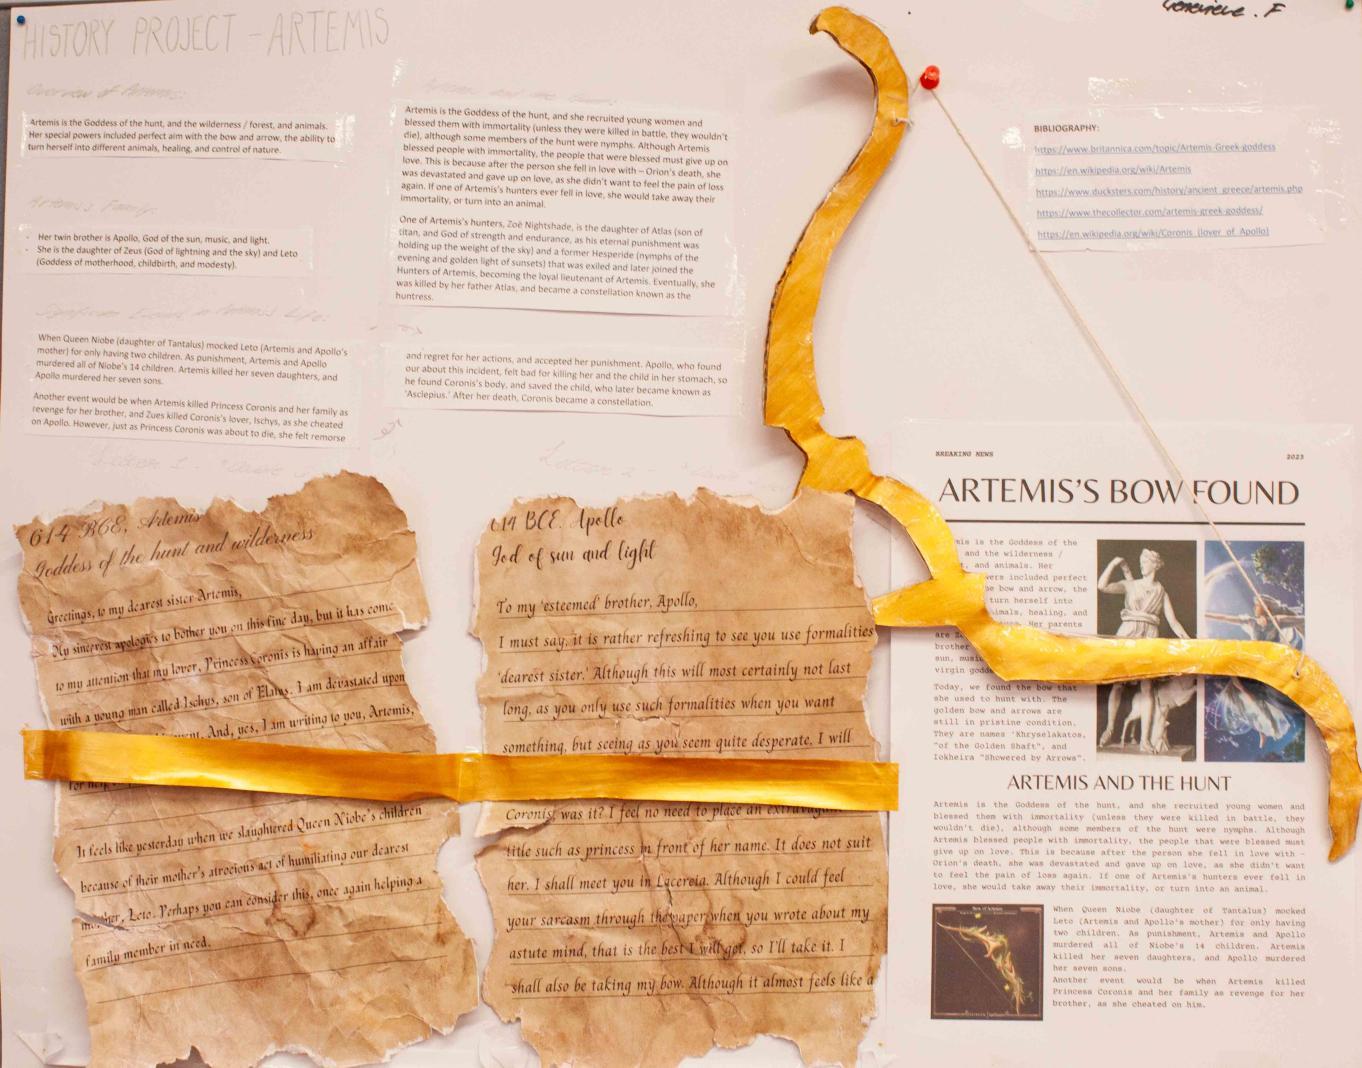 Genevieve . F
HISTORY PROJECT - ARTEMIS
Overview of Artemis:
Artemis is the Goddess of the hunt, and the wilderness / forest, and animals.
Her special powers included perfect aim with the bow and arrow, the ability to
turn herself into different animals, healing, and control of nature.
Artemis's Family:
- Her twin brother is Apollo, God of the sun, music, and light.
- She is the daughter of Zeus (God of lightning and the sky) and Leto
(Goddess of motherhood, childbirth, and modesty).
Significant Events in Artemis Life:
When Queen Niobe (daughter of Tantalus) mocked Leto (Artemis and Apollo's
mother) for only having two children. As punishment, Artemis and Apollo
murdered all of Niobe's 14 children. Artemis killed her seven daughters, and
Apollo murdered her seven sons.
Another event would be when Artemis killed Princess Coronis and her family as
revenge for her brother, and Zues killed Coronis's lover, Ischys, as she cheated
on Apollo. However, just as Princess Coronis was about to die, she felt remorse
Artemis is the Goddess of the hunt, and she recruited young women and
blessed them with immortality (unless they were killed in battle, they wouldn't
die), although some members of the hunt were nymphs. Although Artemis
blessed people with immortality, the people that were blessed must give up on
love. This is because after the person she fell in love with – Orion's death, she
was devastated and gave up on love, as she didn't want to feel the pain of loss
again. If one of Artemis's hunters ever fell in love, she would take away their
immortality, or turn into an animal.
One of Artemis's hunters, Zoë Nightshade, is the daughter of Atlas (son of
titan, and God of strength and endurance, as his eternal punishment was
holding up the weight of the sky) and a former Hesperide (nymphs of the
evening and golden light of sunsets) that was exiled and later joined the
Hunters of Artemis, becoming the loyal lieutenant of Artemis. Eventually, she
was killed by her father Atlas, and became a constellation known as the
huntress.
and regret for her actions, and accepted her punishment. Apollo, who found
our about this incident, felt bad for killing her and the child in her stomach, so
he found Coronis's body, and saved the child, who later became known as
'Asclepius.' After her death, Coronis became a constellation.
BIBLIOGRAPHY:
https://www.britannica.com/topic/Artemis-Greek-goddess
https://en.wikipedia.org/wiki/Artemis
https://www.ducksters.com/history/ancient_greece/artemis.php
https://www.thecollector.com/artemis-greek-goddess/
https://en.wikipedia.org/wiki/Coronis_(lover_of_Apollo)
Letter 1 -
Letter 2 -
614 BCE, Artemis
Goddess of the hunt and wilderness
Greetings, to my dearest sister Artemis,
My sincerest apologies to bother you on this fine day, but it has come
to my attention that my lover, Princess Coronis is having an affair
with a young man called Ischys, son of Elatus. I am devastated upon
And, yes, I am writing to you, Artemis,
for
It feels like yesterday when we slaughtered Queen Niobe's children
because of their mother's atrocious act of humiliating our dearest
mother, Leto. Perhaps you can consider this, once again helping a
family member in need.
614 BCE, Apollo
God of sun and light
To my 'esteemed' brother, Apollo,
I must say, it is rather refreshing to see you use formalities
'dearest sister.' Although this will most certainly not last
long, as you only use such formalities when you want
something, but seeing as you seem quite desperate, I will
Coronis, was it? I feel no need to place an
title such as princess in front of her name. It does not suit
her. I shall meet you in Lacereia. Although I could feel
your sarcasm through the paper when you wrote about my
astute mind, that is the best I will get, so I'll take it. I
shall also be taking my bow. Although it almost feels like a
BREAKING NEWS 2023
ARTEMIS'S BOW FOUND
is the Goddess of the
and the wilderness /
and animals. Her
included perfect
bow and arrow, the
turn herself into
healing, and
Her parents
are
brother
sun,
virgin
Today, we found the bow that
she used to hunt with. The
golden bow and arrows are
still in pristine condition.
They are names 'Khryselakatos,
"of the Golden Shaft", and
Iokheira "Showered by Arrows".
ARTEMIS AND THE HUNT
Artemis is the Goddess of the hunt, and she recruited young women and
blessed them with immortality (unless they were killed in battle, they
wouldn't die), although some members of the hunt were nymphs. Although
Artemis blessed people with immortality, the people that were blessed must
give up on love. This is because after the person she fell in love with –
Orion's death, she was devastated and gave up on love, as she didn't want
to feel the pain of loss again. If one of Artemis's hunters ever fell in
love, she would take away their immortality, or turn into an animal.
When Queen Niobe (daughter of Tantalus) mocked
Leto (Artemis and Apollo's mother) for only having
two children. As punishment, Artemis and Apollo
murdered all of Niobe's 14 children. Artemis
killed her seven daughters, and Apollo murdered
her seven sons.
Another event would be when Artemis killed
Princess Coronis and her family as revenge for her
brother, as she cheated on him.